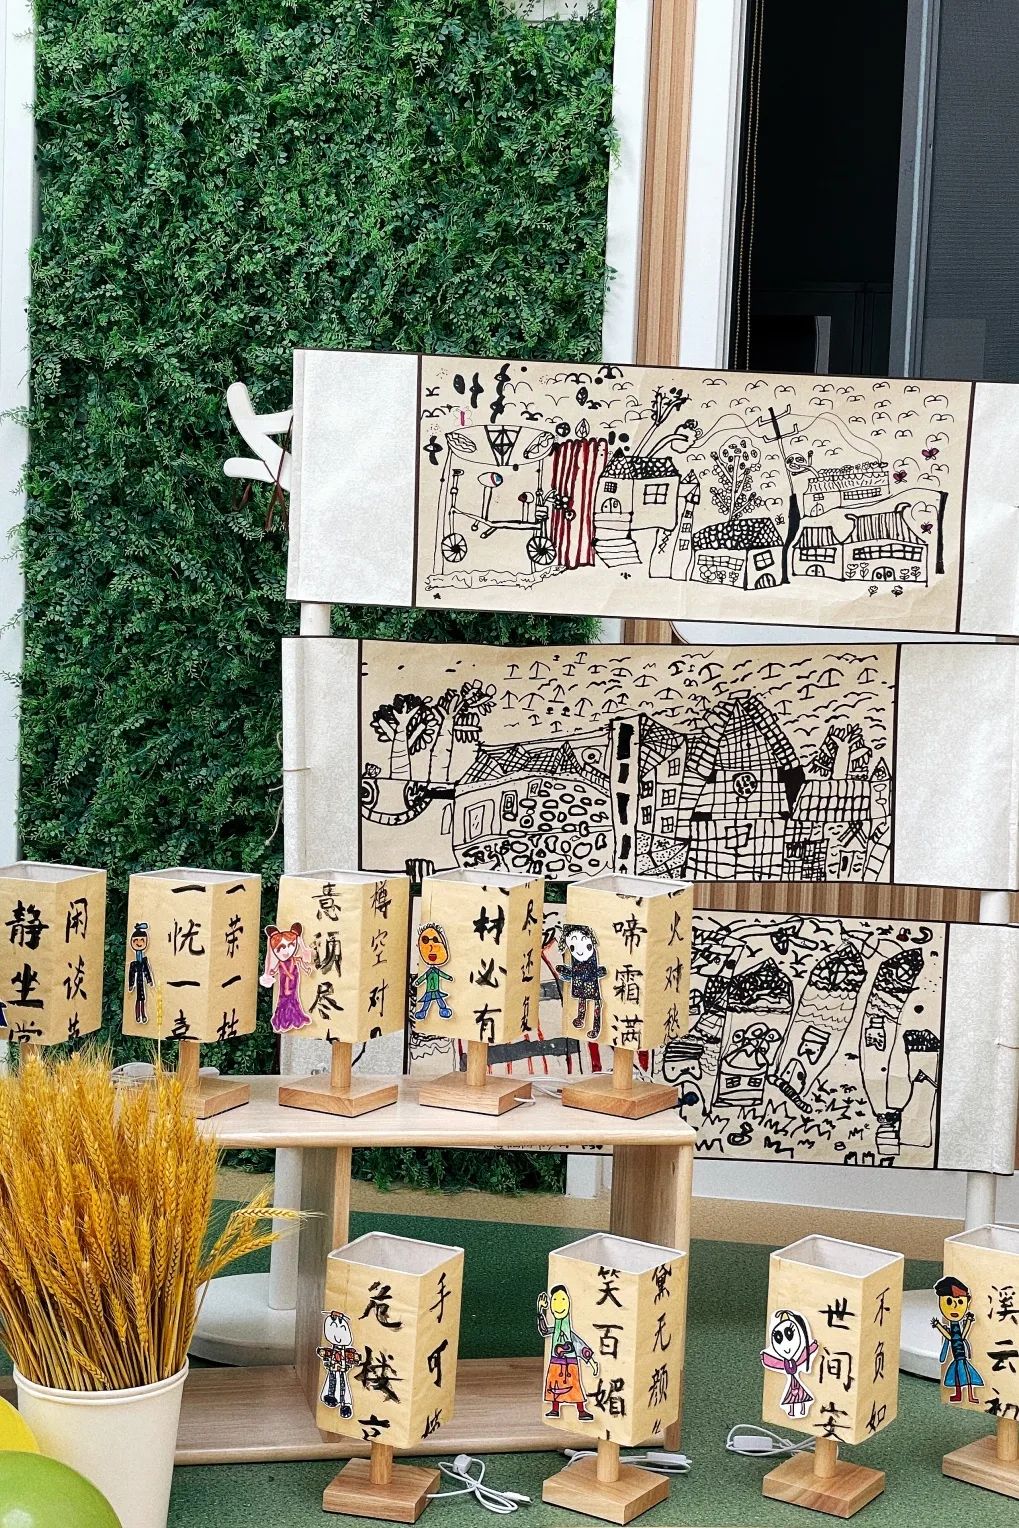 静坐常
闲谈莫
一忧一喜
一荣一枯
意须尽
樽空对
材必有
尽还复
啼霜满
火对愁
危楼高
手可
笑百媚
黛无颜
世间安
不负如
溪云初